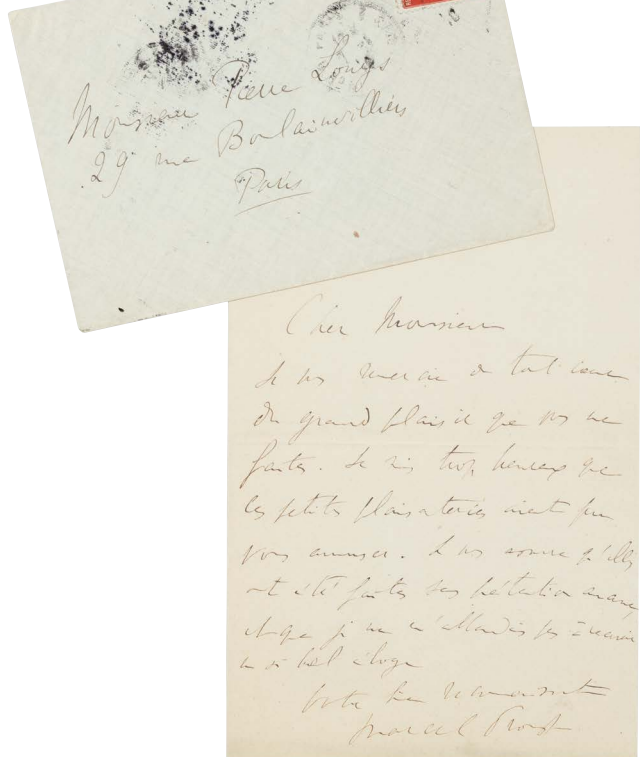 Monsieur Pierre Louÿs
29 rue Boulainvilliers
Paris
Cher Monsieur
Je vs remercie de tout cœur
du grand plaisir que vs me
faites. Je suis trop heureux que
ces petites plaisanteries aient pu
vous amuser. Je vs assure qu'elles
ont été faites sans prétention aucune
et que je ne m'attendais pas à recevoir
un si bel éloge
Votre bien reconnaissant
Marcel Proust